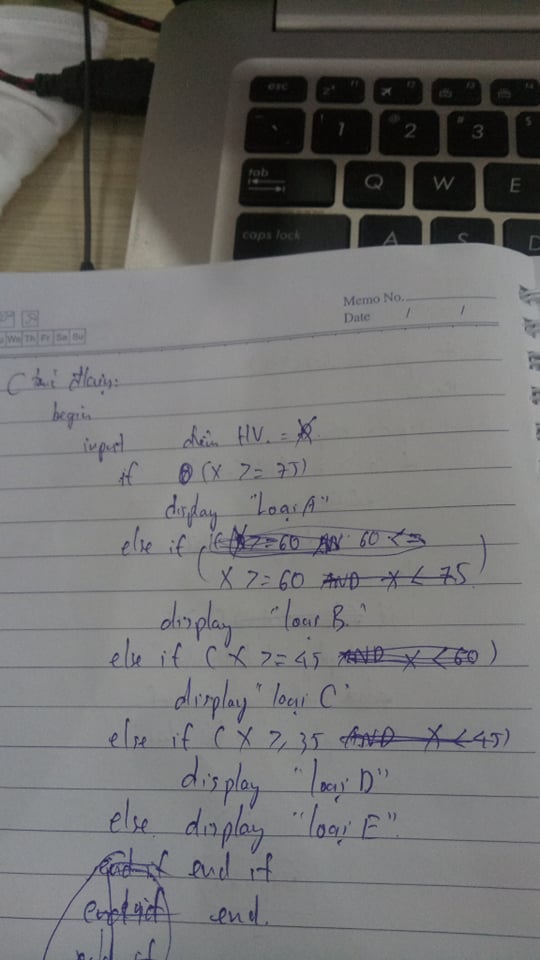 esc F1 F2 F3 F4
~ ` ! 1 @ 2 # 3 $
tab Q W E
caps lock A S D
Memo No.
Date / /
We Th Fr Sa Su
begin
input điểm HV. = X
if (X >= 75)
display "Loại A"
else if if (X >= 60 AN 60 <=
( X >= 60 AND X < 75 )
display "loại B."
else if ( X >= 45 AND X < 60 )
display "loại C"
else if ( X >, 35 AND X < 45)
display "loại D"
else display "loại E".
end if end if
end if end.
end if